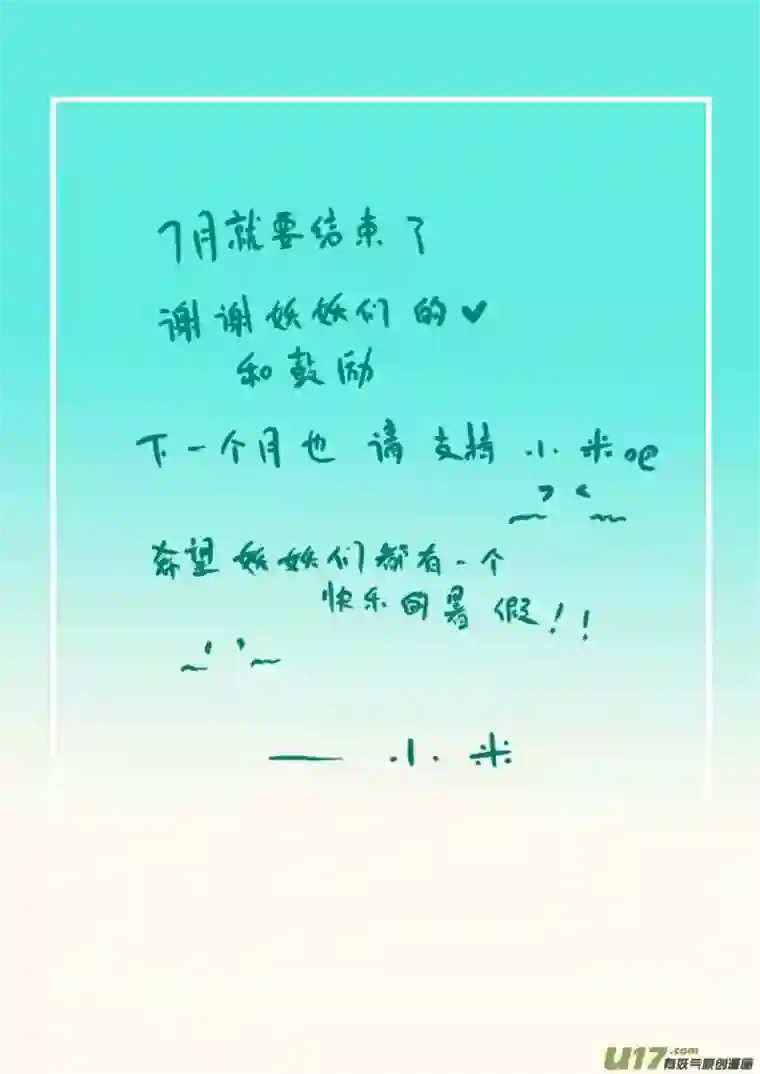 7月就要结束了
谢谢妖妖们的♥
和鼓励
下一个月也请支持小米oe
希望妖妖们都有一个
快乐的暑假！！
— 小米
U17.com
有妖气原创漫画